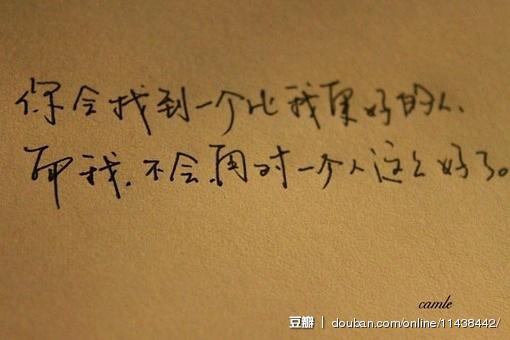 你会找到一个比我更好的人、
而我.不会再对一个人这么好了。
camle
豆瓣 | douban.com/online/11438442/